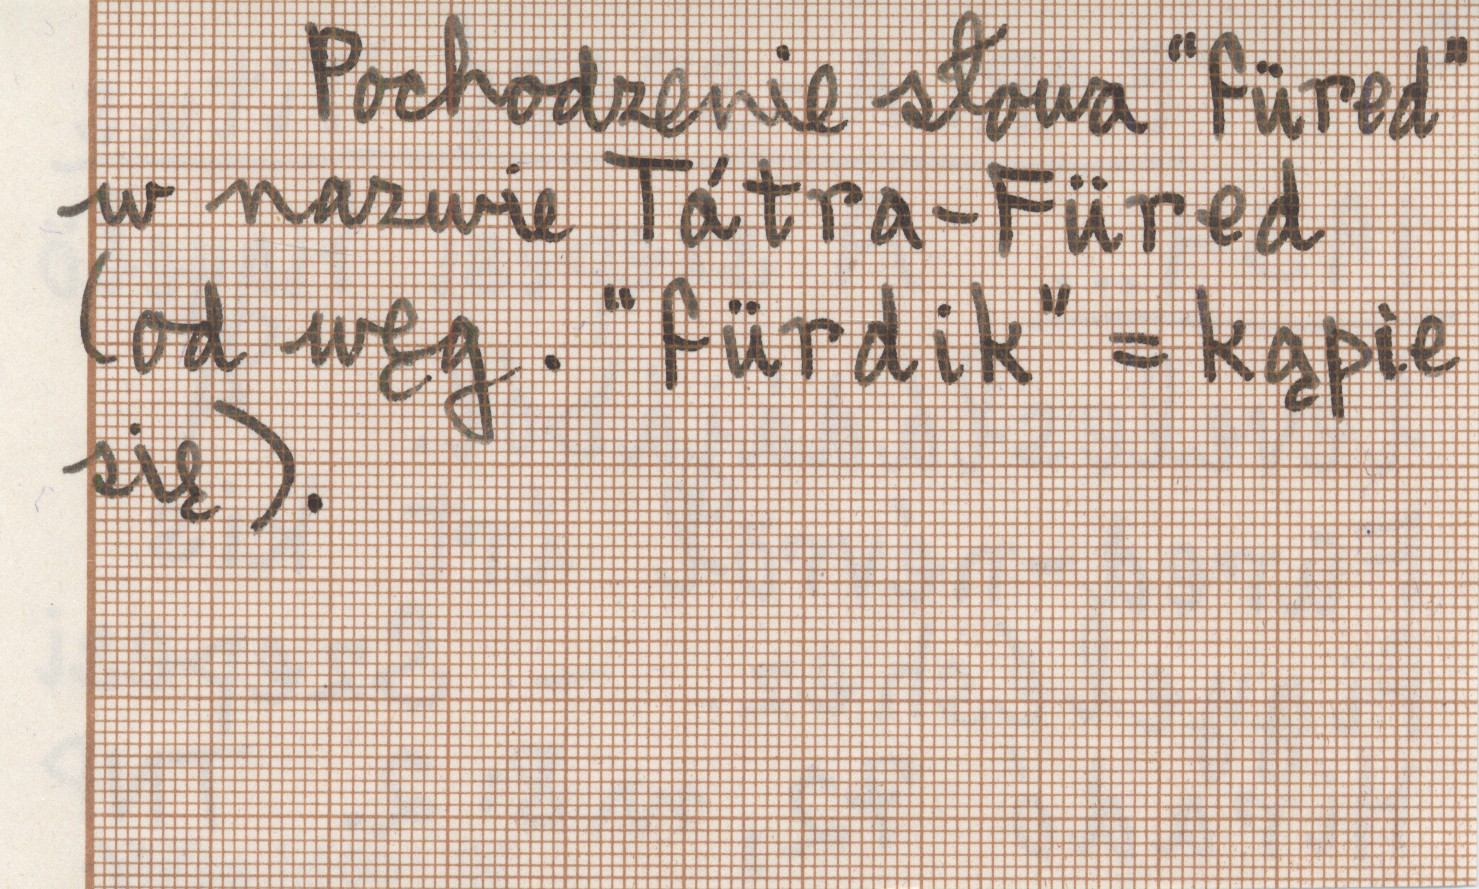 Pochodzenie słowa "füred"
w nazwie Tátra-Füred
(od węg. "fürdik" = kąpie
się).